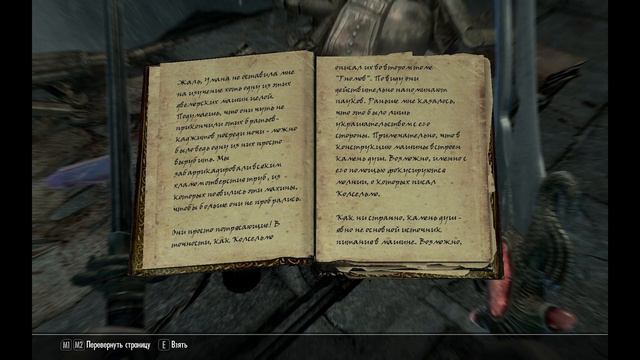 Жаль, Умана не оставила мне
на изучение хоть одну из этих
двемерских машин целой.
Подумаешь, что они чуть не
прикончили этих братьев-
каджитов посреди ночи - можно
было ведь одну из них просто
вырубить. Мы
забаррикадировали всяким
хламом отверстие труб, из -
которых появились эти махины,
чтобы больше они не пробрались.
Они просто потрясающие! В
точности, как Колсельмо
описал их во втором томе
"Гномов". По виду они
действительно напоминают
пауков. Раньше мне казалось,
что это было лишь
украшательством с его
стороны. Примечательно, что в
конструкцию машины встроен
камень душ. Возможно, именно с
его помощью фокусируются
молнии, о которых писал
Колсельмо.
Как ни странно, камень душ -
явно не основной источник
питания в машине. Возможно,
M1 M2 Перевернуть страницу E Взять